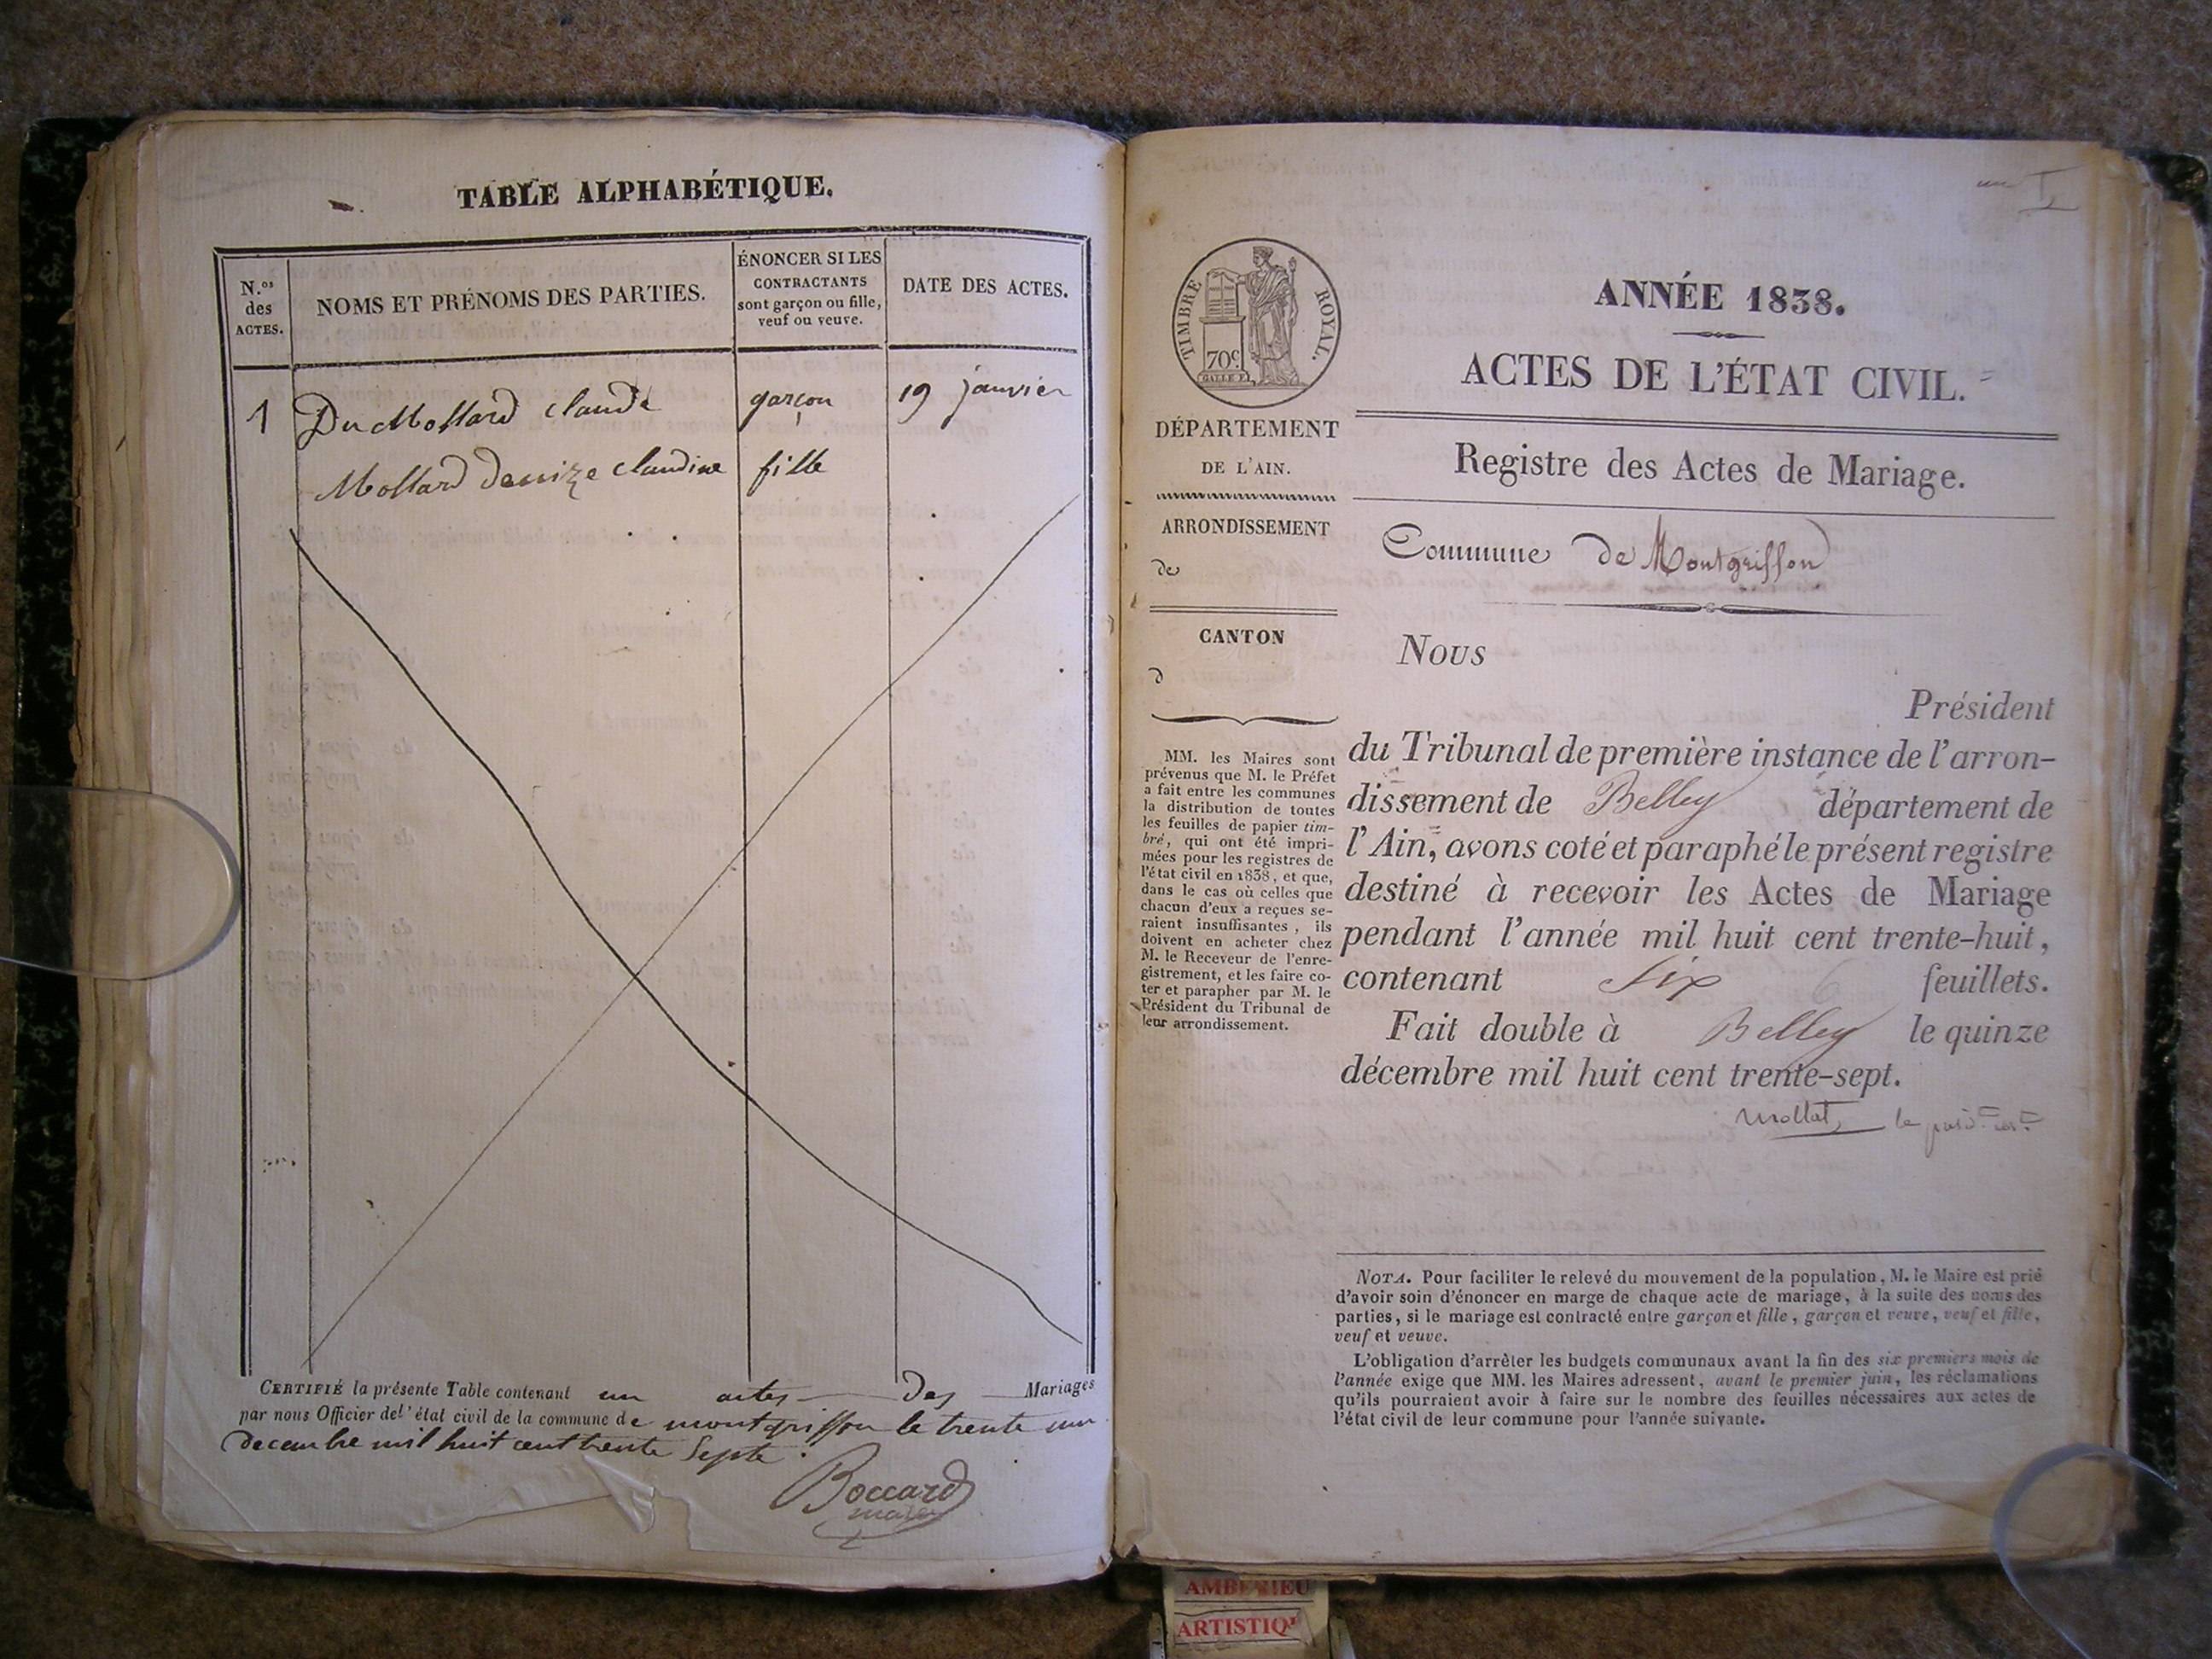 TABLE ALPHABÉTIQUE.
N.os
des
ACTES.
NOMS ET PRÉNOMS DES PARTIES.
ÉNONCER SI LES
CONTRACTANTS
sont garçon ou fille,
veuf ou veuve.
DATE DES ACTES.
1 DuMollard claude garçon 19 janvier
Mollard denize claudine fille
CERTIFIÉ la présente Table contenant un actes des Mariages
par nous Officier del'état civil de la commune de montgriffon le trente un
decembre mil huit cent trente Septe.
Boccard
maire
un I
TIMBRE ROYAL.
70c
DÉPARTEMENT
DE L'AIN.
ARRONDISSEMENT
de
CANTON
d
MM. les Maires sont
prévenus que M. le Préfet
a fait entre les communes
la distribution de toutes
les feuilles de papier tim-
bré, qui ont été impri-
mées pour les registres de
l'état civil en 1838, et que,
dans le cas où celles que
chacun d'eux a reçues se-
raient insuffisantes, ils
doivent en acheter chez
M. le Receveur de l'enre-
gistrement, et les faire co-
ter et parapher par M. le
Président du Tribunal de
leur arrondissement.
ANNÉE 1838.
ACTES DE L'ÉTAT CIVIL.
Registre des Actes de Mariage.
Commune de Montgriffon
Nous
Président
du Tribunal de première instance de l'arron-
dissement de Belley département de
l'Ain, avons coté et paraphé le présent registre
destiné à recevoir les Actes de Mariage
pendant l'année mil huit cent trente-huit,
contenant six 6 feuillets.
Fait double à Belley le quinze
décembre mil huit cent trente-sept.
Mollet, le
NOTA. Pour faciliter le relevé du mouvement de la population, M. le Maire est prié
d'avoir soin d'énoncer en marge de chaque acte de mariage, à la suite des noms des
parties, si le mariage est contracté entre garçon et fille, garçon et veuve, veuf et fille,
veuf et veuve.
L'obligation d'arrêter les budgets communaux avant la fin des six premiers mois de
l'année exige que MM. les Maires adressent, avant le premier juin, les réclamations
qu'ils pourraient avoir à faire sur le nombre des feuilles nécessaires aux actes de
l'état civil de leur commune pour l'année suivante.
AMBERIEU
ARTISTIQU